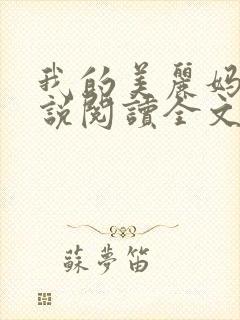 我的美麗媽
說閱讀全文
蘇夢笛